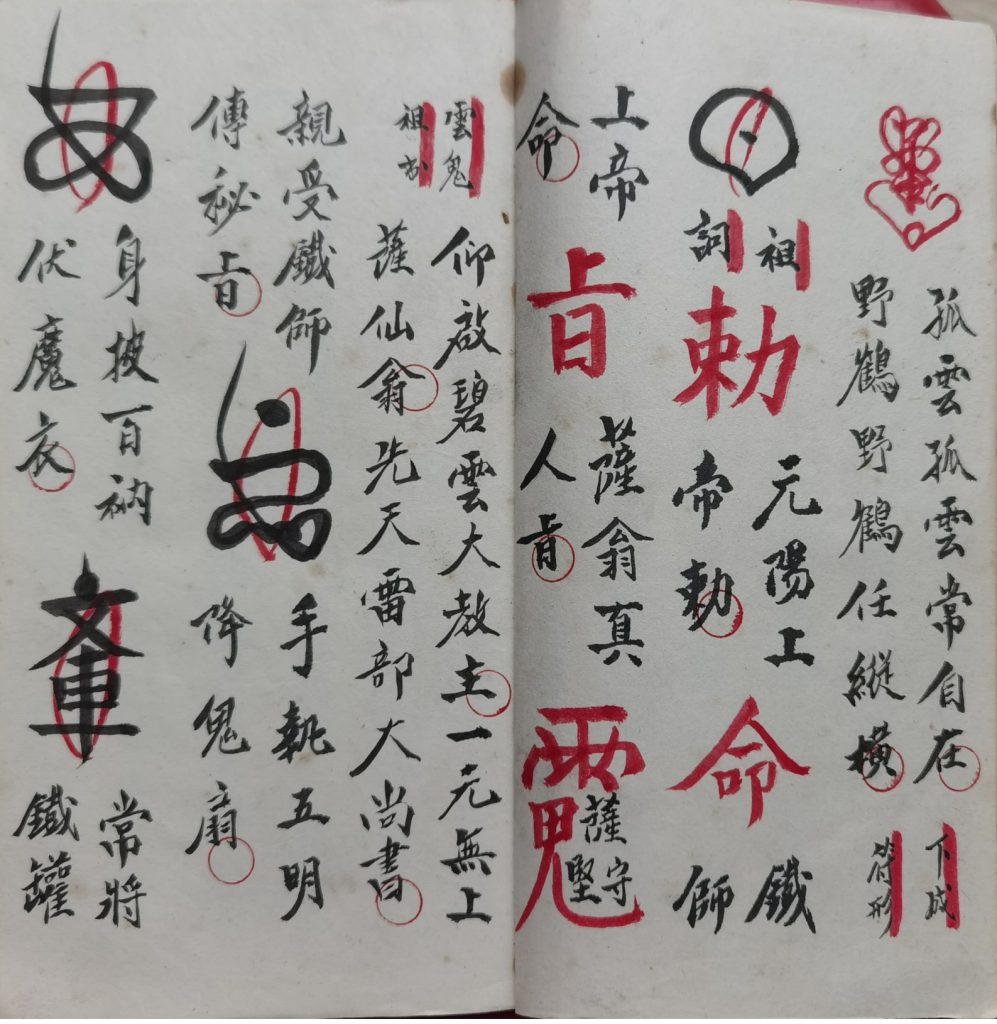 孤雲孤雲常自在
野鶴野鶴任縱橫
下成
符形
祖
詞
勅
元陽上
帝勅
命
鐵
師
上帝
命
㫖
薩翁真
人㫖
薩守
堅
雲鬼
祖
仰啟碧雲大教主一元無上
薩仙翁先天雷部大尚書
親受鐵師
傳秘㫖
手執五明
降鬼扇
身披百衲
伏魔衣
常將
鐵罐